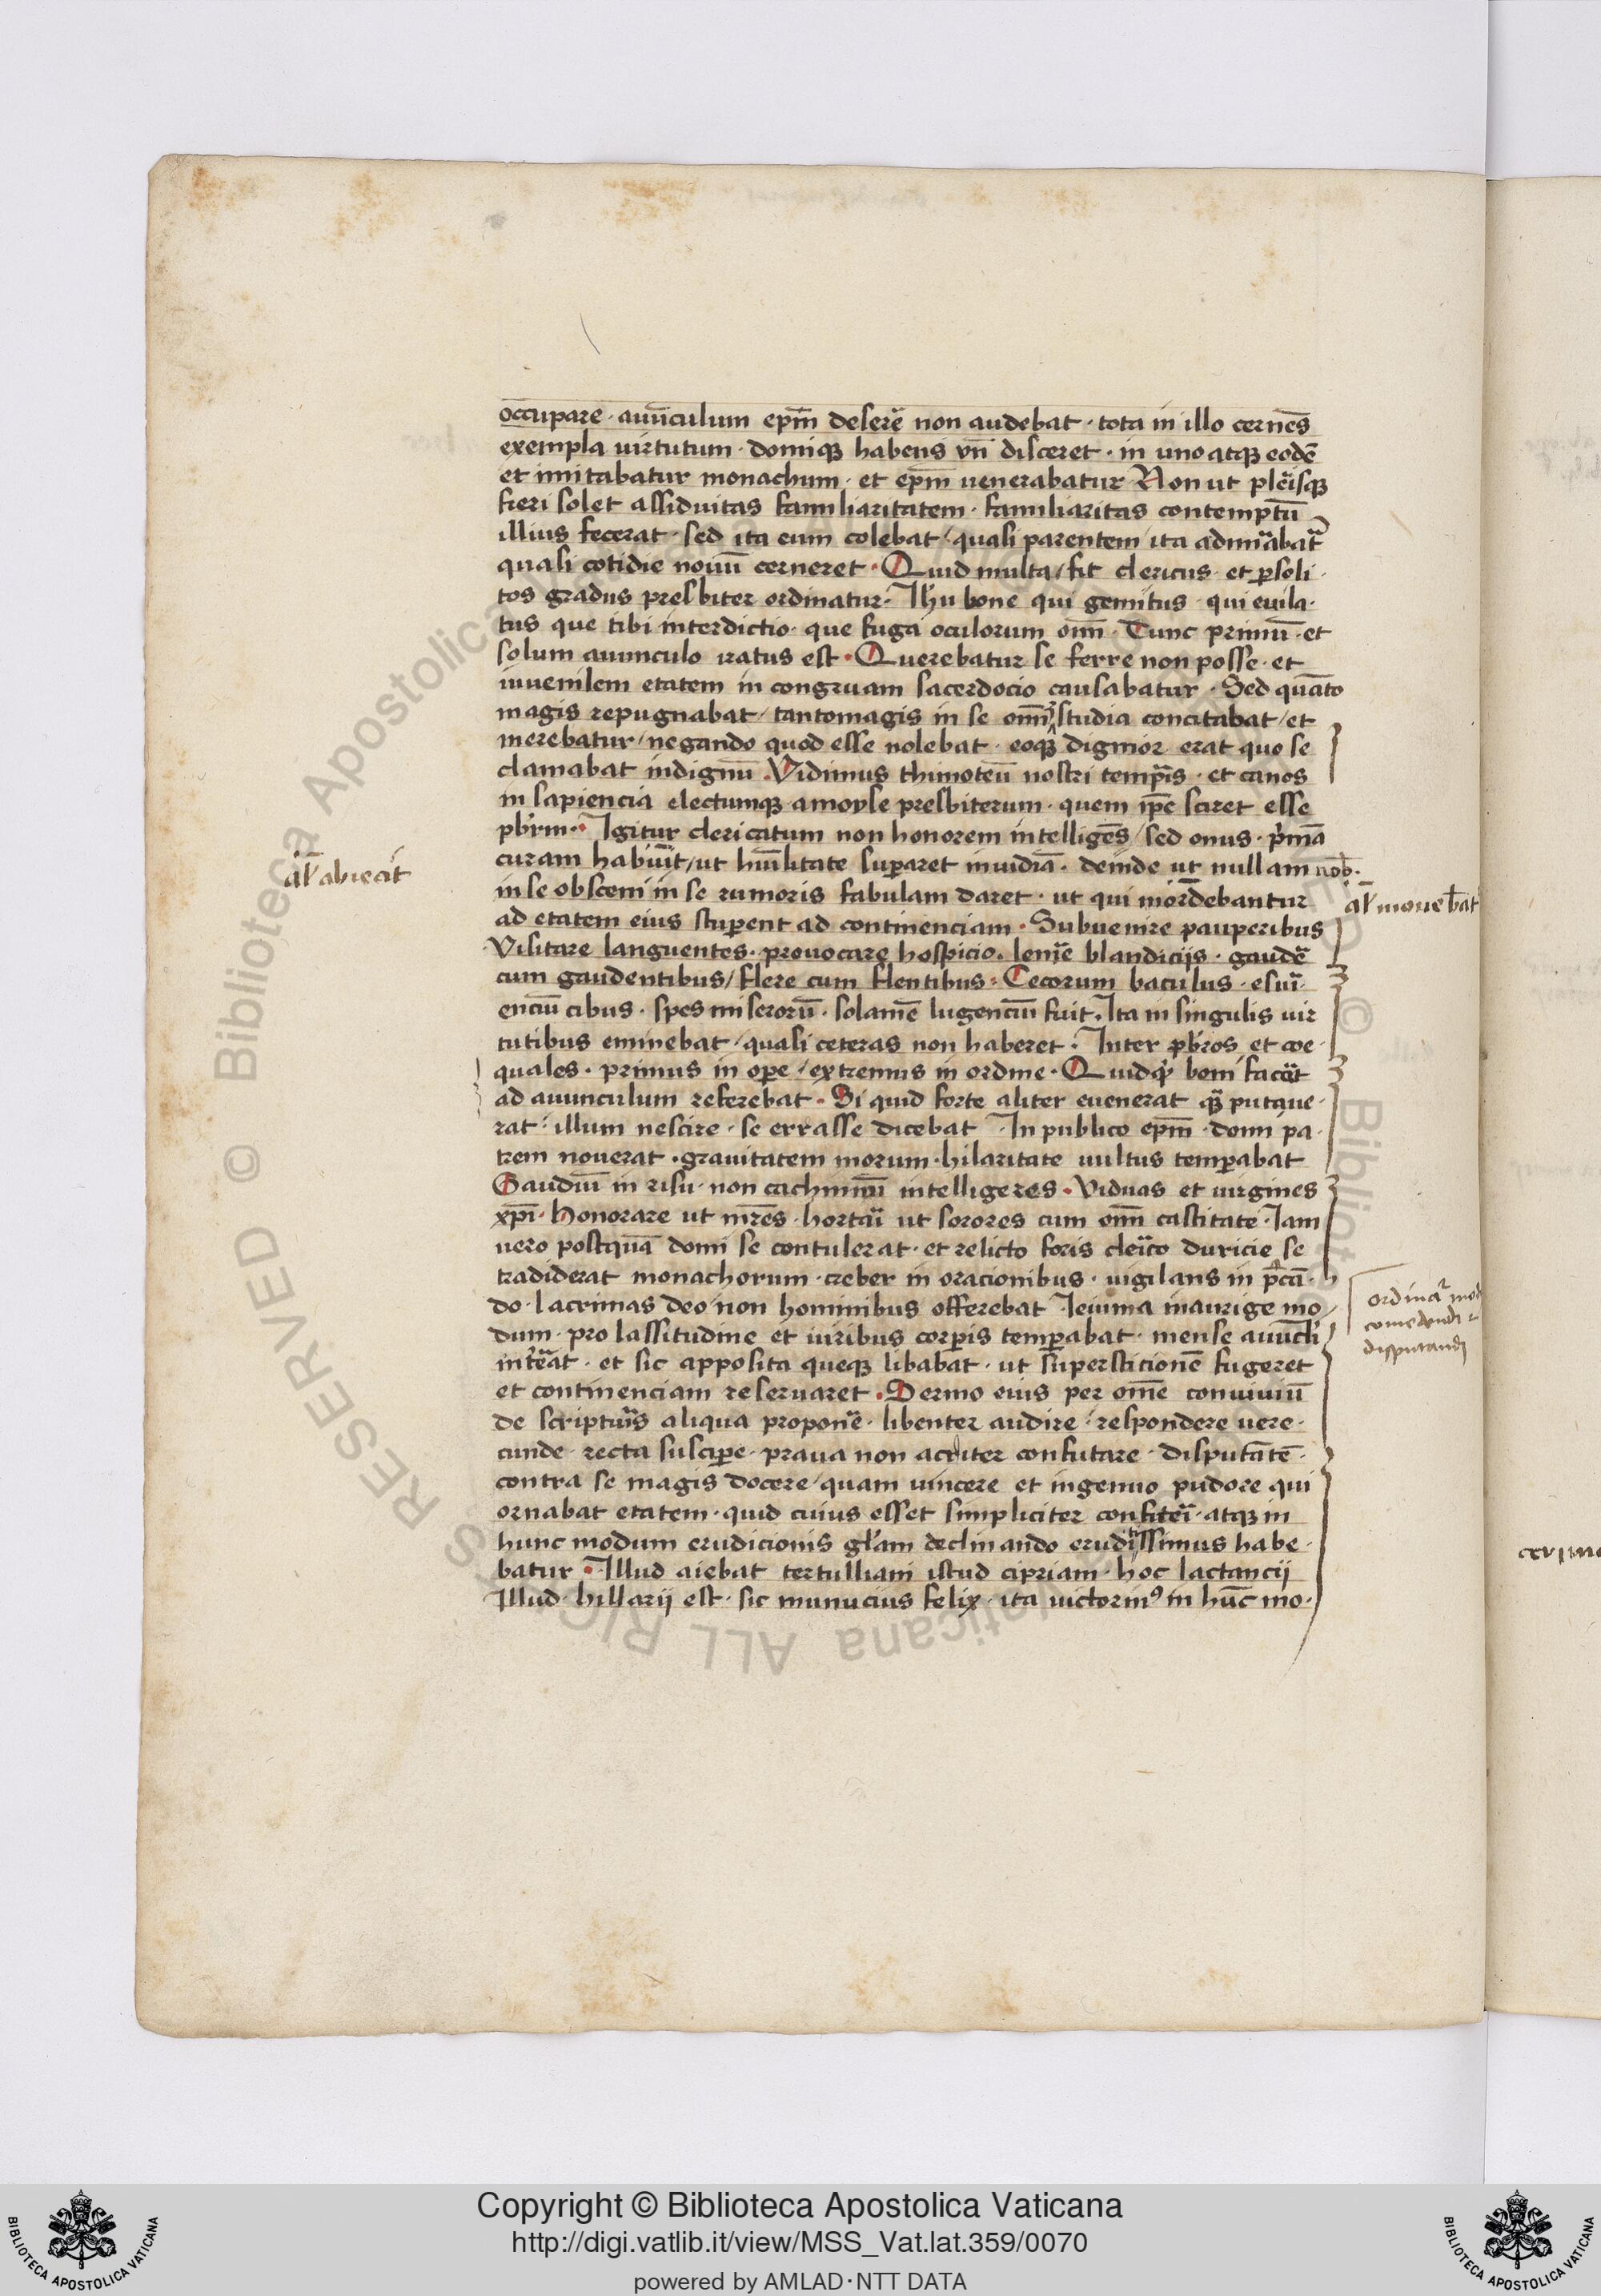 occupare · auūculum ep̄m deserē non audebat · tota in illo cernēs
exempla uirtutum · domiqꝫ habens vn̄ disceret · in uno atqꝫ eodē
et imitabatur monachum · et ep̄m uenerabatur Non ut pler̄isqꝫ
fieri solet assiduitas familiaritatem · familiaritas contemptū
illius fecerat · sed ita eum colebat / quasi parentem ita admirabat᷑
quasi cotidie nouū cerneret · Quid multa / fit clericus · et ꝑ soli·
tos gradus presbiter ordinatur · Ihu bone qui gemitus · qui euila·
tus que tibi interdictio · que fuga oculorum om̄ · Tunc primū · et
solum auunculo iratus est · Querebatur se ferre non posse · et
iuuenilem etatem in congruam sacerdocio causabatur · Sed quāto
magis repugnabat / tantomagis in se om̄ studia concitabat / et
merebatur / negando quod esse nolebat · eoqꝫ dignior erat quo se
clamabat indignū · Vidimus thimoteū nostri temꝑis · et canos
in sapiencia electumqꝫ a moyse presbiterum · quem ip̄e sciret esse
pb̄rm · Igitur clericatum non honorem intelligēs / sed onus · p̄mā
curam habuit / ut hūilitate suꝑaret inuidiā · deinde ut nullam
al̄ abiecit
nob̄ ·
in se obsceni in se rumoris fabulam daret · ut qui mordebantur
al̄ mouebāt
ad etatem eius stuꝑent ad continenciam · Subuenire pauperibus
Visitare languentes · prouocare hospicio · lenīe blandicijs · gaudē
cum gaudentibus / flere cum flentibus : Cecorum baculus · esuri·
enciū cibus · spes miserorū · solamē lugenciū fuit · Ita in singulis uir
tutibus eminebat / quasi ceteras non haberet · Inter pb̄ros et coe·
quales · primus in oꝑe / extremus in ordine · Quidqͥd boni facēt
ad auunculum referebat · Si quid forte aliter euenerat qͣ putaue·
rat · illum nescire · se errasse dicebat · In publico ep̄m · domi pa·
trem nouerat · grauitatem morum · hilaritate uultus temꝑabat
Gaudiū in risu · non cachinnū intelligeres · Viduas et uirgines
xp̄i · honorare ut mr̄es · hortari ut sorores cum om̄ castitate · Iam
uero postquā domi se contulerat · et relicto foris cleīco duricie se
tradiderat monachorum · creber in oracionibus · uigilans in p̄cā·
do · lacrimas deo non hominibus offerebat Ieiunia inaurige mo
ordinar̄ mod
comedendi ⁊
disputandi
dum · pro lassitudine et uiribus corꝑis temꝑabat · mense auūcli
int̄eāt · et sic apposita queqꝫ libabat · ut supersticionē fugeret
et continenciam reseruaret · Sermo eius per omē conuiuiū
de scripturis aliqua proponē · libenter audire · respondere uere·
cunde · recta susciꝑe · praua non acriter confutare · disputātē·
contra se magis docere / quam uincere et ingenuo pudore qui
ornabat etatem · quid cuius esset simpliciter confiteri · atqꝫ in
hunc modum erudicionis gl̄am declinando eruditissimus habe·
batur · Illud aiebat tertulliani istud cipriani · hoc lactancij
Illud · hillarij est · sic munucius felix · ita uictorinꝰ in hūc mo·
Copyright © Biblioteca Apostolica Vaticana
http://digi.vatlib.it/view/MSS_Vat.lat.359/0070
powered by AMLAD·NTT DATA
BIBLIOTECA APOSTOLICA VATICANA
BIBLIOTECA APOSTOLICA VATICANA